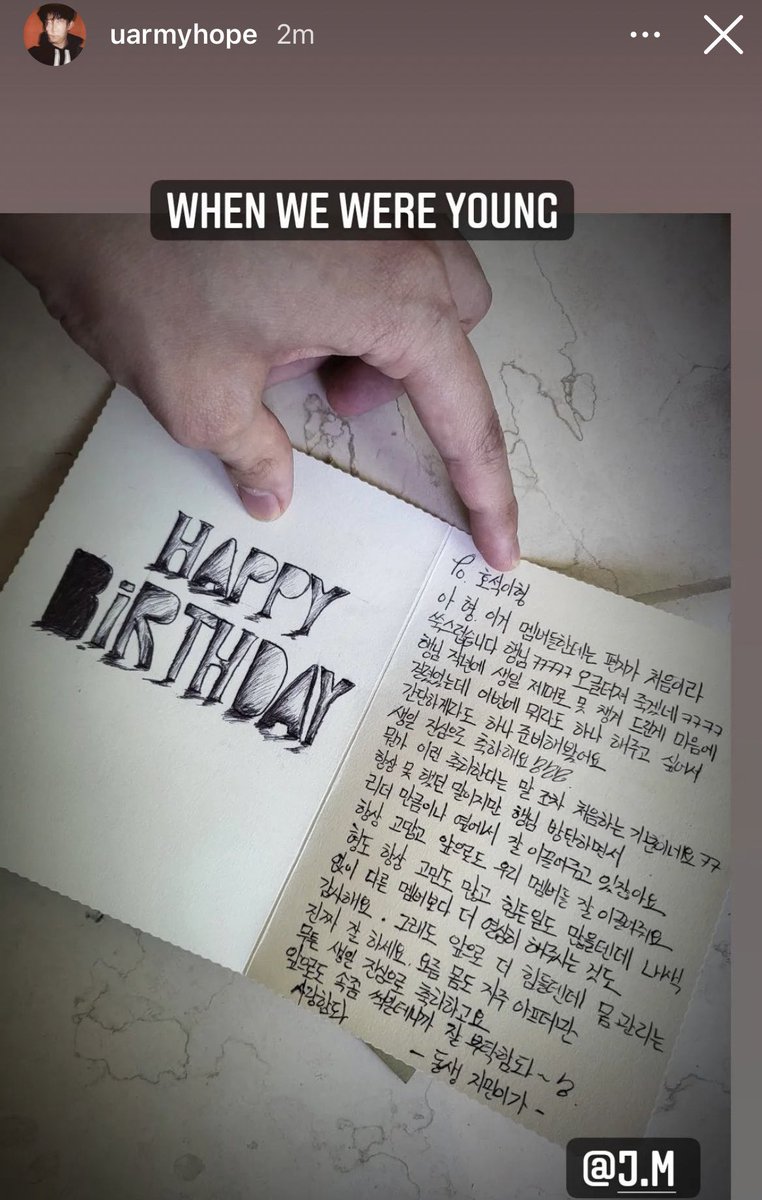 uarmyhope 2m
WHEN WE WERE YOUNG
HAPPY
BiRTHDAY
To. 호석이형
아 형 이거 멤버들한테는 편지가 처음이라
쑥스럽습니다 행님 ㅋㅋㅋㅋㅋ 오글타져 죽겠네 ㅋㅋㅋㅋ
행님 작년에 생일 제대로 못 챙겨 드린게 마음에
걸렸었는데 이번에 뭐라도 하나 해주고 싶어서
간단하게라도 하나 준비해봤어요
생일 진심으로 축하해요
뭔가 이런 축하한다는 말 조차 처음하는 기분이네요 ㅋㅋ
항상 못 했던 말이지만 행님 방탄하면서
리더 만큼이나 옆에서 잘 이끌어주고 있잖아요
항상 고맙고 앞으로도 우리 멤버들 잘 이끌어줘요
형도 항상 고민도 많고 힘든일도 많을텐데 내색
없이 다른 멤버보다 더 열심히 해주시는 것도
감사해요. 그래도 앞으로 더 힘들텐데 몸 관리는
진짜 잘 하세요 요즘 몸도 자주 아프더만
무튼 생일 진심으로 축하하고요
앞으로도 속좀 썩일테니까 잘 부탁함돠~
사랑함돠
- 동생 지민이가 -
@J.M